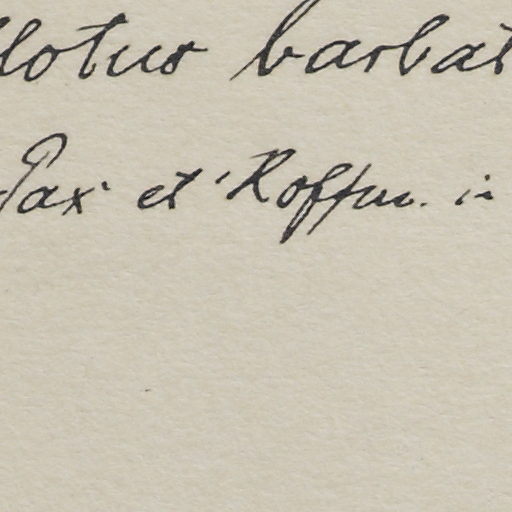 lotus barbat
Pax et K. Hoffm. in